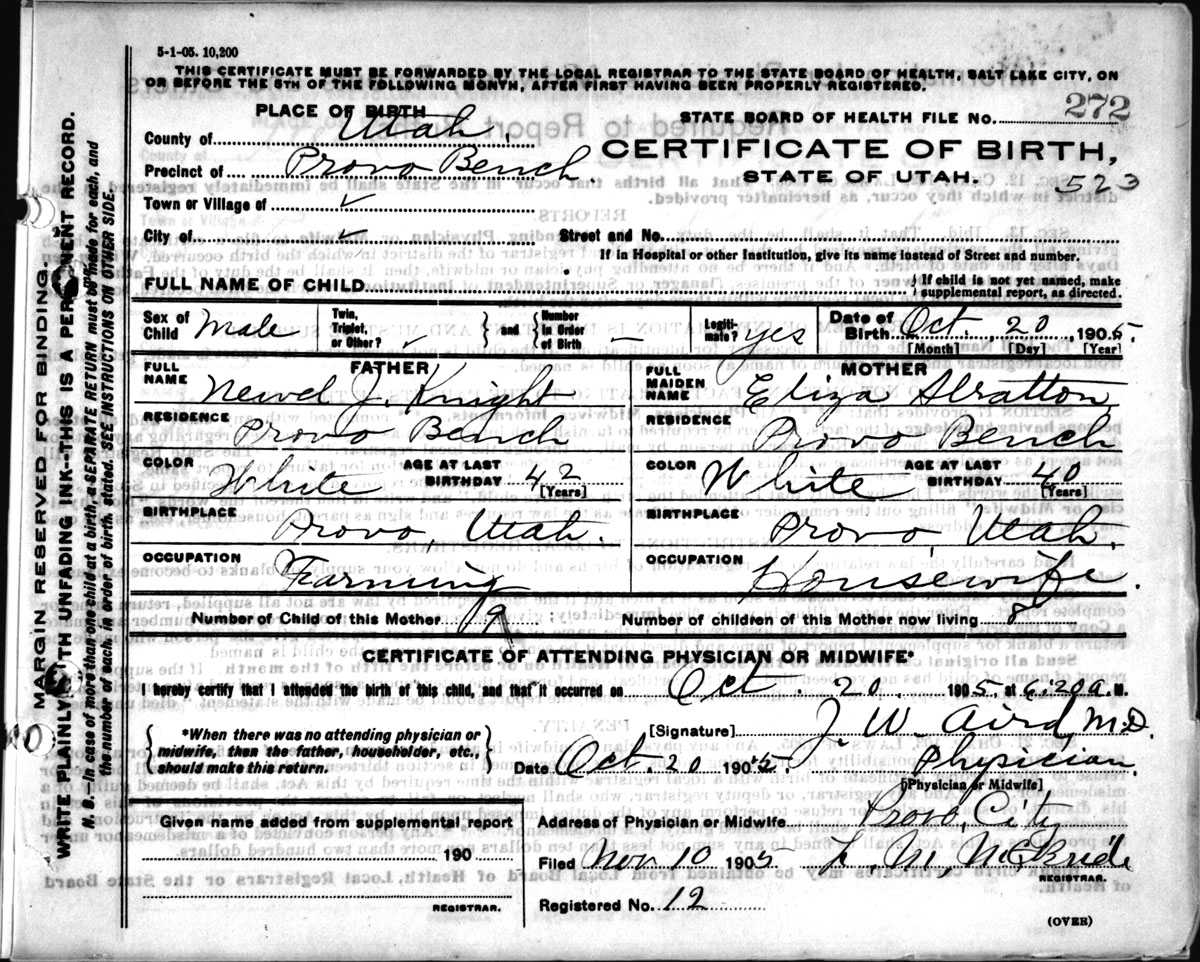 5-1-05. 10,200
THIS CERTIFICATE MUST BE FORWARDED BY THE LOCAL REGISTRAR TO THE STATE BOARD OF HEALTH, SALT LAKE CITY, ON
OR BEFORE THE 5TH OF THE FOLLOWING MONTH, AFTER FIRST HAVING BEEN PROPERLY REGISTERED.
PLACE OF BIRTH
STATE BOARD OF HEALTH FILE NO. 272
County of Utah.
CERTIFICATE OF BIRTH,
Precinct of Provo Bench.
STATE OF UTAH. 523
Town or Village of ✓
City of ✓ Street and No.
If in Hospital or other Institution, give its name instead of Street and number.
FULL NAME OF CHILD { If child is not yet named, make
supplemental report, as directed.
Sex of Child Male Twin, Triplet, or Other? ✓ } and { Number in Order of Birth — Legitimate? yes Date of Birth Oct. 20 1905
[Month] [Day] [Year]
FATHER
FULL NAME Newel J. Knight
RESIDENCE Provo Bench
COLOR White AGE AT LAST BIRTHDAY 42 [Years]
BIRTHPLACE Provo, Utah.
OCCUPATION Farming
MOTHER
FULL MAIDEN NAME Eliza Stratton
RESIDENCE Provo Bench
COLOR White AGE AT LAST BIRTHDAY 40 [Years]
BIRTHPLACE Provo, Utah.
OCCUPATION Housewife.
Number of Child of this Mother 9 Number of children of this Mother now living 8
CERTIFICATE OF ATTENDING PHYSICIAN OR MIDWIFE*
I hereby certify that I attended the birth of this child, and that it occurred on Oct. 20. 1905. at 6:20 a. M.
{ *When there was no attending physician or
midwife, then the father, householder, etc.,
should make this return. }
[Signature] J. W. Aird, M.D.
Date Oct. 20 1905. Physician.
[Physician or Midwife]
Given name added from supplemental report
190
REGISTRAR.
Address of Physician or Midwife Provo City
Filed Nov 10 1905 McBride
REGISTRAR.
Registered No. 12
(OVER)
MARGIN RESERVED FOR BINDING.
WRITE PLAINLY WITH UNFADING INK--THIS IS A PERMANENT RECORD.
N. B.--In case of more than one child at a birth, a SEPARATE RETURN must be made for each, and
the number of each, in order of birth, stated. SEE INSTRUCTIONS ON OTHER SIDE.